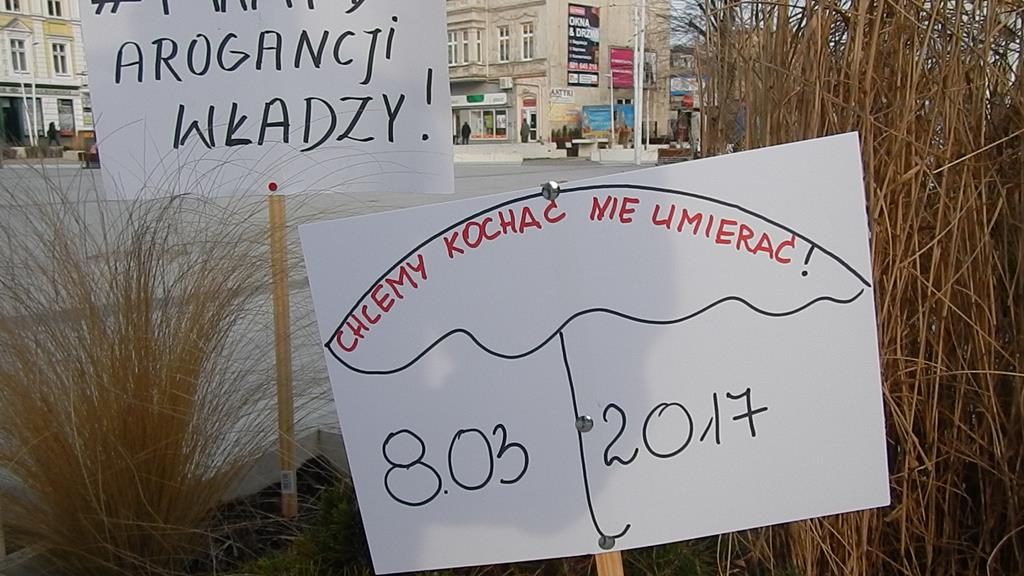 AROGANCJi
WŁADZY!
OKNA
& DRZWI
ANTYKI
CHCEMY KOCHAĆ NIE UMIERAĆ!
8.03 2017